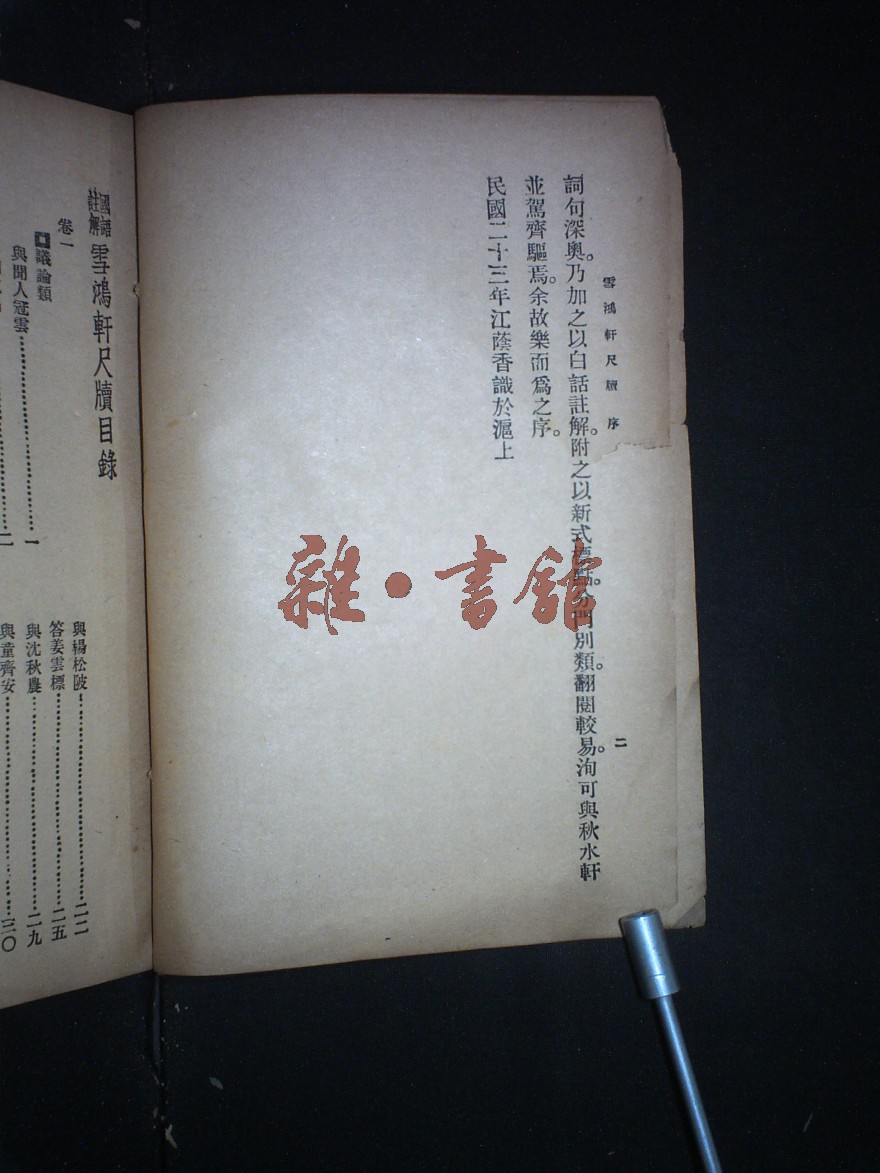 雪鴻軒尺牘 序
二
詞句深奧。乃加之以白話註解。附之以新式標點。分門別類。翻閱較易。洵可與秋水軒
並駕齊驅焉。余故樂而爲之序。
民國二十三年江蔭香識於滬上
雜·書館
國語註解雪鴻軒尺牘目錄
卷一
議論類
與聞人冠雲……一
二
與楊松陂……二二
答姜雲標……二五
與沈秋農……二九
與童齊安……三〇